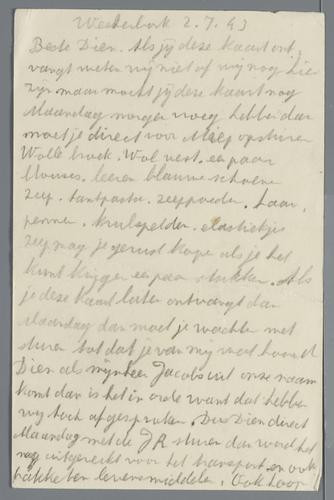 Westerbork 2.7.43
Beste Dien. Als jij deze kaart ont,
vangt weten wij niet of wij nog hier
zijn maar mocht jij deze kaart nog
Maandag morgen vroeg hebben dan
moet je direct voor Miep opsturen
Wolle broek. Wol vest. een paar
blouses. leeren blauwe schoene
zeep. tantpasta. zeeppoeder. haar,
pennen. krulspelden. elastiekjes
zeep mag je gerust kope als je het
kunt krijgen een paar stukken. Als
je deze kaart later ontvangt dan
Maandag dan moet je wachten met
sturen tot dat je van mij weer hoord
Dien als mijnheer Jacobs uit onze naam
komt dan is het in orde want dat hebben
wij toch afgesproken. Dus Dien direct
Maandag met de JR sturen dan word het
nog uitgereikt voor het transport en ook
pakketten levensmiddelen. Ook hoor